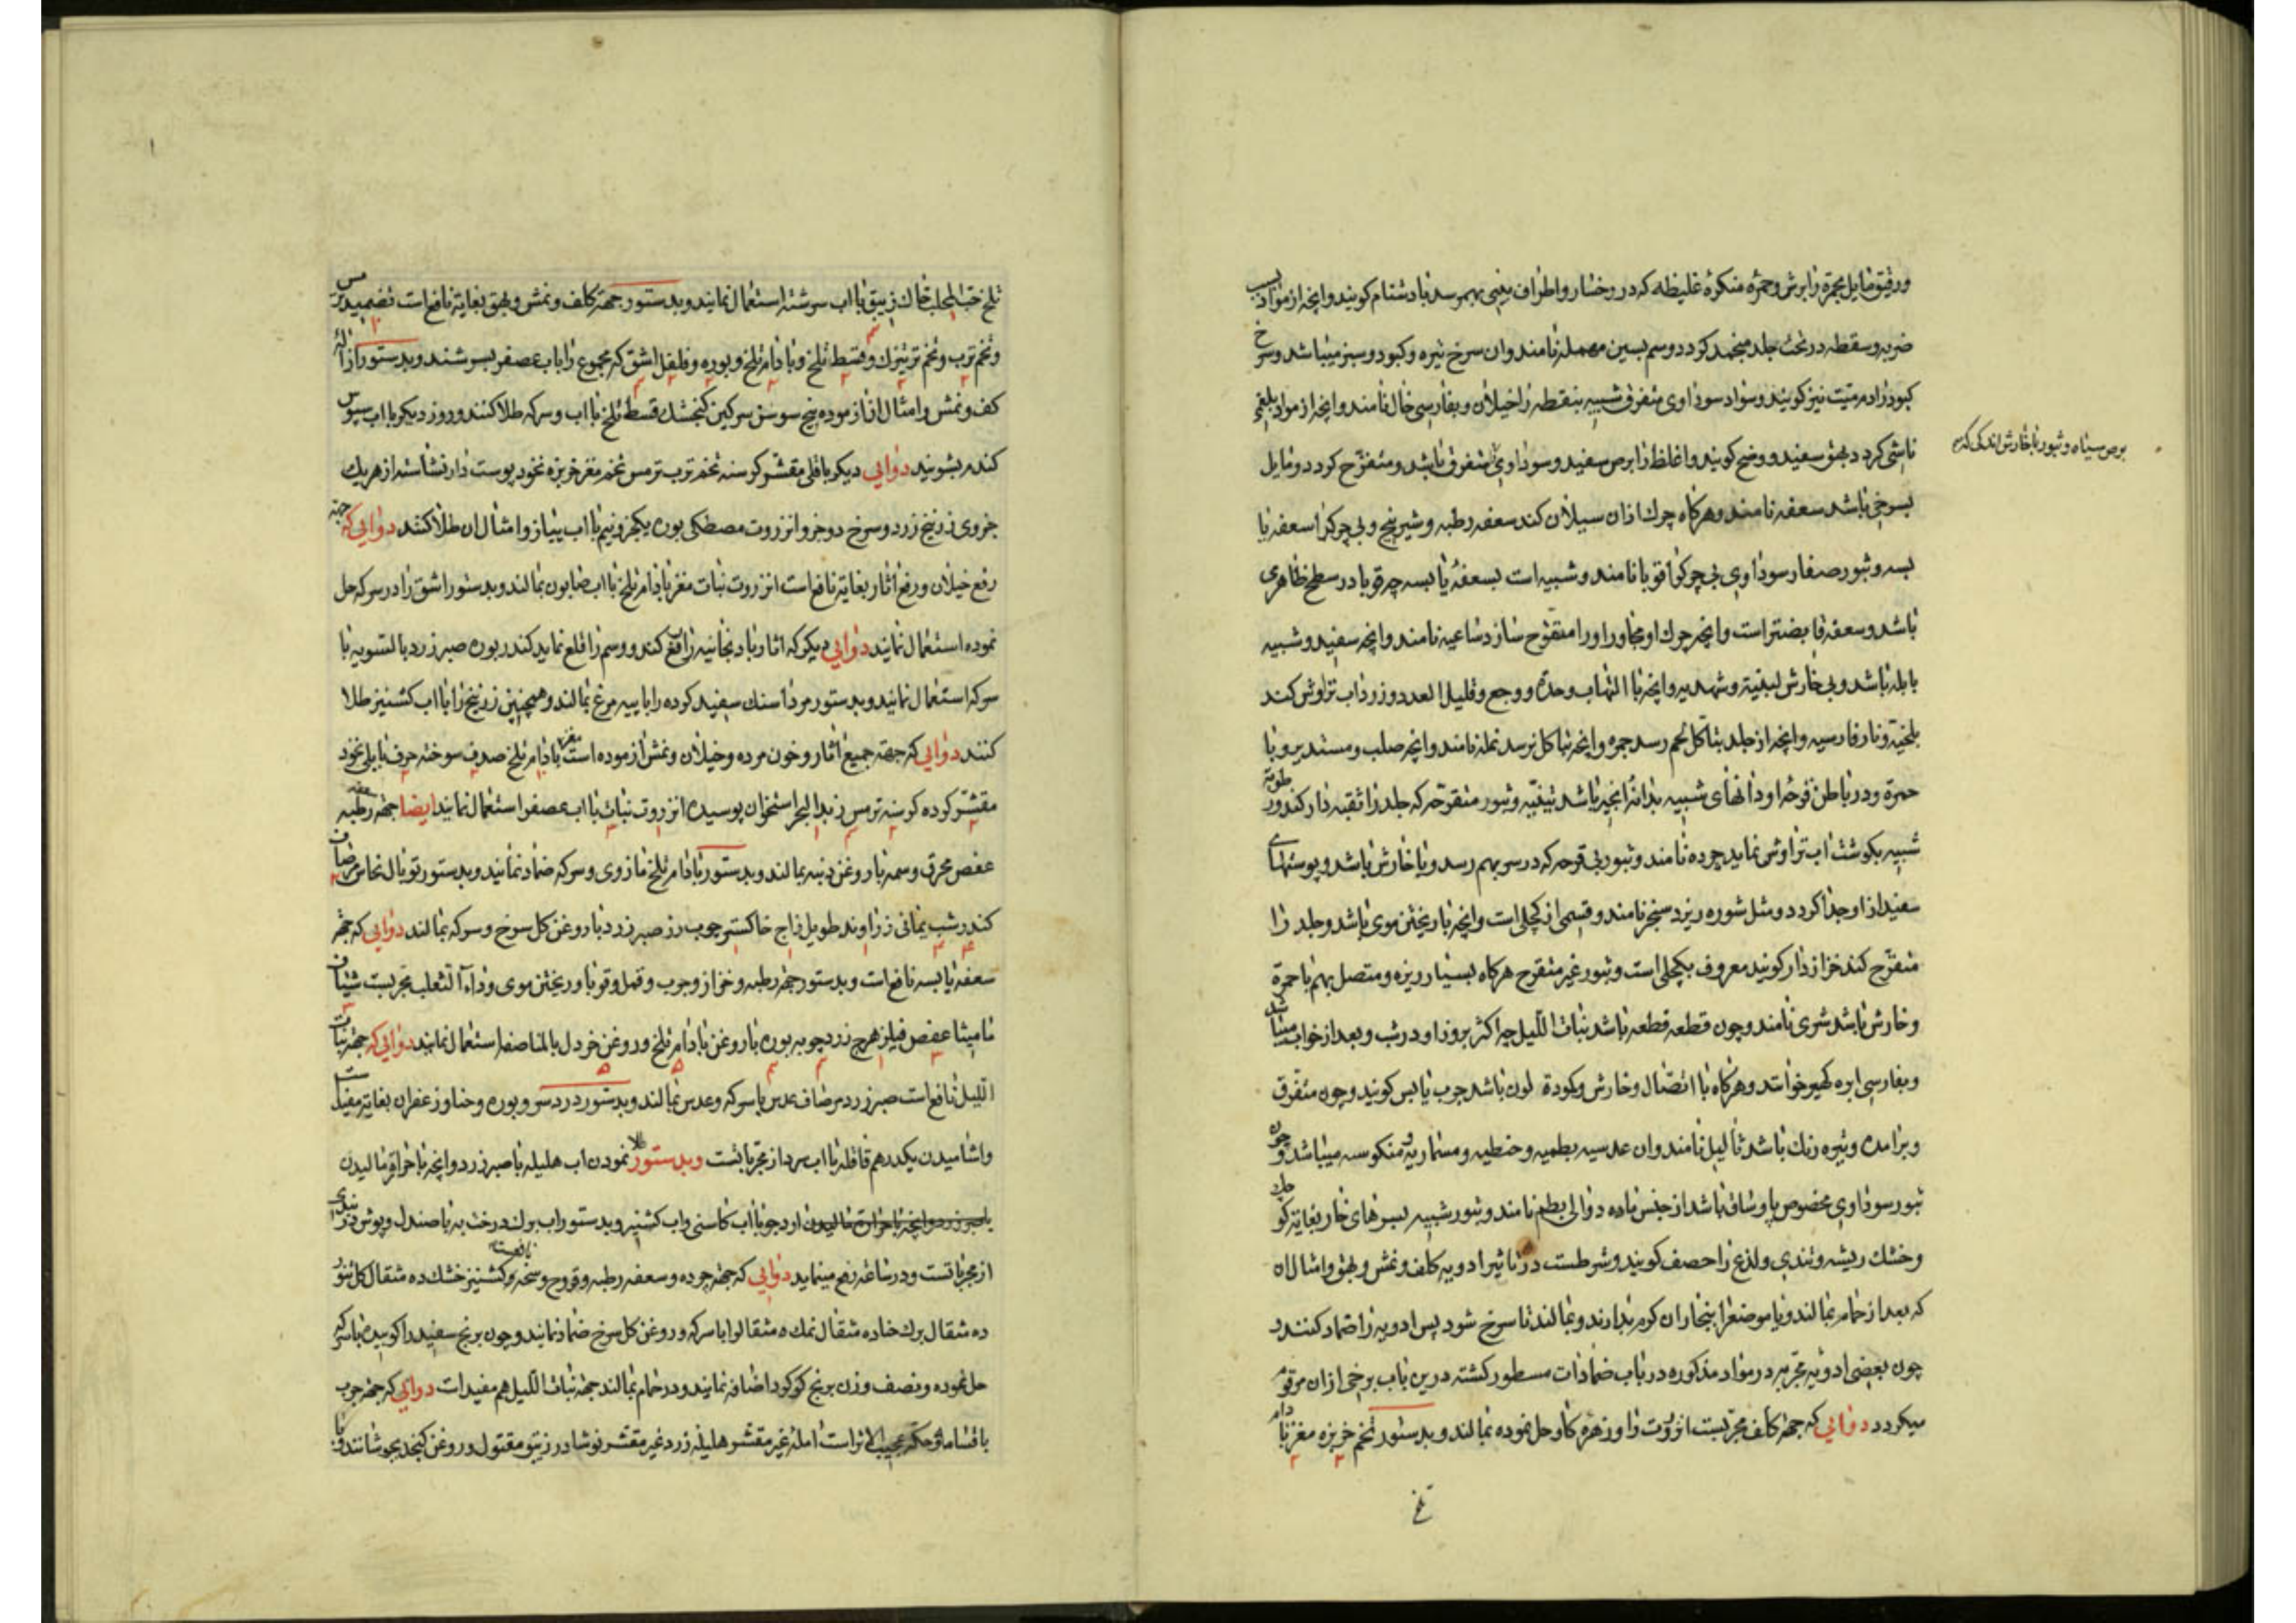 ورقیق مایل بحمرة را برش و حمرة منکرهٔ غلیظه که در رخسار و اطراف بینی بهم رسد باد شنام کویند و انچه از مواد بسبب
ضربه و سقطه در تحت جلد منجمد کردد و سم بسین مهمله نامند و ان سرخ تیره و کبود و سبز میباشد و سرخ
کبود را دم میت نیز کویند و سواد سوداوی متفرق شبیه بنقطه را خیلان و بفارسی خال نامند و انچه از مواد بلغمی
ناشی کردد بهق سفید و وضح کویند و اغلظ را برص سفید و سوداوی متفرق باشد و متقرح کردد و مایل
برص سیاه و ثبور با خارش اندکی که
بسرخی باشد سعفه نامند و هرکاه چرک ازان سیلان کند سعفه رطبه و شیرینج و بی چرک را سعفه یا
بسه و ثبور صغار سوداوی بی چرک را قوبا نامند و شبیه است بسعفهٔ یابسه چه قوبا در سطح ظاهری
باشد و سعفه غایضتر است و انچه چرک او مجاور او را متقرح سازد ساعیه نامند و انچه سفید و شبیه
بابله باشد و بی خارش لبنیة و شهدیه و انچه با التهاب و حدة و وجع و قلیل العدد و زرداب تراوش کند
بلخیة و نار فارسیه و انچه از جلد بتاکل لحم رسد جمره و انچه بتاکل نرسد نمله نامند و انچه صلب و مستدیر و با
حمرة و در باطن قوحهٔ او دانهای شبیه بدانهٔ انجیر باشد تینیه و ثبور متقرحه که جلد را ثقبه دار کند و رطوبة
شبیه بکوشت اب تراوش نماید چوده نامند و ثبور بی قوحه که در سر بهم رسد و با خارش باشد و پوستهای
سفید از او جدا کردد و مثل شوره ریزد سبخر نامند و قسمی از کچلی است و انچه با ریختن موی باشد و جلد را
متقرح کند خزاز دار کویند معروف بکچلی است و ثبور غیر متقرح هرکاه بسیار ریزه و متصل بهم با حمرة
و خارش باشد شری نامند و چون قطعه قطعه باشد بنات اللیل چه اکثر بروز او در شب و بعد از خواب میباشد
و بفارسی ابره کهیر خوانند و هرکاه با اتصال و خارش و کبودة لون باشد جرب یابس کویند و چون متفرق
و برامده و تیره رنک باشد ثالیل نامند و ان عدسیه بطمیه و حنطیه و مسماریه و منکوسه میباشد و چون
ثبور سوداوی مخصوص پا و ساق باشد از جنس ماده دوالی بطم نامند و ثبور شبیه بسرهای خار بغایة کوچک
و خشک ریشه و تندی و لذع را حصف کویند و شرطست در تاثیر ادویه کلف و نمش و بهق و امثال ان
که بعد از حمام بمالند و یا موضع را ببخار آن کرم بدارند و بمالند تا سرخ شود پس ادویه را ضماد کنند و
چون بعضی ادویه مجربه در مواد مذکوره در باب ضمادات مسطور کشته درین باب برخی ازان مرقوم
میکردد دوایی که جهة کلف مجربست انزروت را و زهره کاو حل نموده بمالند و بدستور تخم خربزه مغز بادام
تلخ
تلخ حب المحلب خاک زیبق با اب سرشته استعمال نمایند و بدستور جهة کلف و نمش و بهق بغایة نافع است تضمید
و تخم ترب و تخم تر تیزک و قسط تلخ و بادام تلخ و بوره و فلفل اشق که مجموع را باب عصفر بسرشند و بدستور ازالهٔ
کلف و نمش و امثال ان از موده بیخ سوسن سرکین کنجشک قسط تلخ با اب و سرکه طلا کنند و روز دیکر با اب سبوس
کندم بشویند دوایی دیکر باقلی مقشر کوسنه تخم ترب ترمس تخم مغز خربزه نخود پوست دار نشاسته از هر یک
جزوی زرنیخ زرد و سرخ دو جزو انزروت مصطکی بوره یکجزو نیم با اب پیاز و امثال ان طلا کنند دوایی که جهة
رفع خیلان و رفع اثار بغایة نافع است انزروت نبات مغز بادام تلخ با اب صابون بمالند و بدستور اشق را در سرکه حل
نموده استعمال نمایند دوایی دیکر که اثار بادنجانیه را رفع کند و وسم را قلع نماید کندر بوره صبر زرد بالتسویه با
سرکه استعمال نمایند و بدستور مرداسنک سفید کرده را با پیه مرغ بمالند و همچنین زرنیخ را با اب کشنیز طلا
کنند دوایی که جهة جمیع اثار و خون مرده و خیلان و نمش ازموده است مغز بادام تلخ صدف سوخته حرف بابلی نخود
مقشر کرده کوسنه ترمس زبد البحر استخوان پوسیده انزروت نبات با اب عصفر استعمال نمایند ایضا جهة سعفه رطبه
عفص محرق وسمه با روغن دنبه بمالند و بدستور بادام تلخ مازوی و سرکه ضماد نمایند و بدستور توبال نحاس مر صاف
کندر شب یمانی زراوند طویل زاج خاکستر چوب رز صبر زرد با روغن کل سرخ و سرکه بمالند دوایی که جهة
سعفه یابسه نافع است و بدستور جهة رطبه و خزاز و جرب و قمل و قوبا و ریختن موی و داء الثعلب مجربست شیاف
مامیثا عفص فیلزهرج زردچوبه بوره با روغن بادام تلخ و روغن خردل بالمناصفه استعمال نمایند دوایی که جهة بنات
اللیل نافع است صبر زرد مر صاف عدس با سرکه و عدس بمالند و بدستور درد سر و بوره و حنا و زعفران بغایة مفید است
و اشامیدن یکدرهم قاقله با اب سرد از مجرباتست و بدستور طلا نمودن اب هلیله با صبر زرد و انچه با حراقة مالیدن
با صبر زرد و انچه با حرارت مالیدن ارد جو با اب کاسنی و اب کشنیز و بدستور اب برک درخت به با صندل و پوش دربندی
از مجرباتست و در ساعة رفع مینماید دوایی که جهة چوده و سعفه رطبه و قروح وسخه نافعست و کشنیز خشک ده مثقال کل تنور
ده مثقال برک حنا ده مثقال نمک ه مثقال را با سرکه و روغن کل سرخ ضماد نمایند و چون برنج سفید را کوبیده با سرکه
حل نموده و نصف وزن برنج کوکرد اضافه نمایند و در حمام بمالند جهة بنات اللیل هم مفید است دوایی که جهة جرب
باقسامه و حکه عجیب الاثر است امله غیر مقشر هلیله زرد غیر مقشر نوشادر زیبق مقتول در روغن کنجد بجوشانند و با